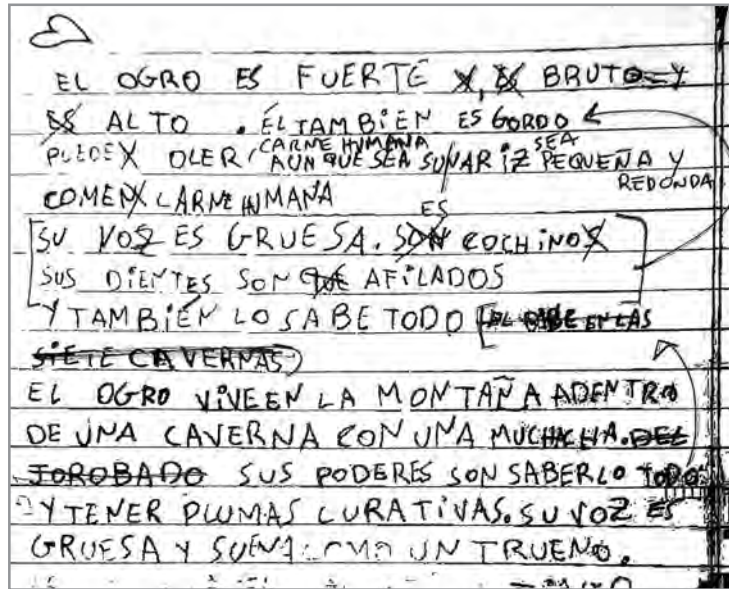 EL OGRO ES FUERTE Y, ES BRUTO Y
ES ALTO . ÉL TAMBIÉN ES GORDO
CARNE HUMANA SEA
PUEDEX OLER AUNQUE SEA SUNARIZ PEQUEÑA Y
REDONDA
COMEN CARNE HUMANA
ES
SU VOZ ES GRUESA. SON COCHINOS
SUS DIENTES SON QUE AFILADOS
Y TAMBIÉN LO SABE TODO EN LAS
SIETE CAVERNAS
EL OGRO VIVE EN LA MONTAÑA ADENTRO
DE UNA CAVERNA CON UNA MUCHACHA. DEL
JOROBADO SUS PODERES SON SABERLO TODO
Y TENER PLUMAS CURATIVAS. SU VOZ ES
GRUESA Y SUENA COMO UN TRUENO.